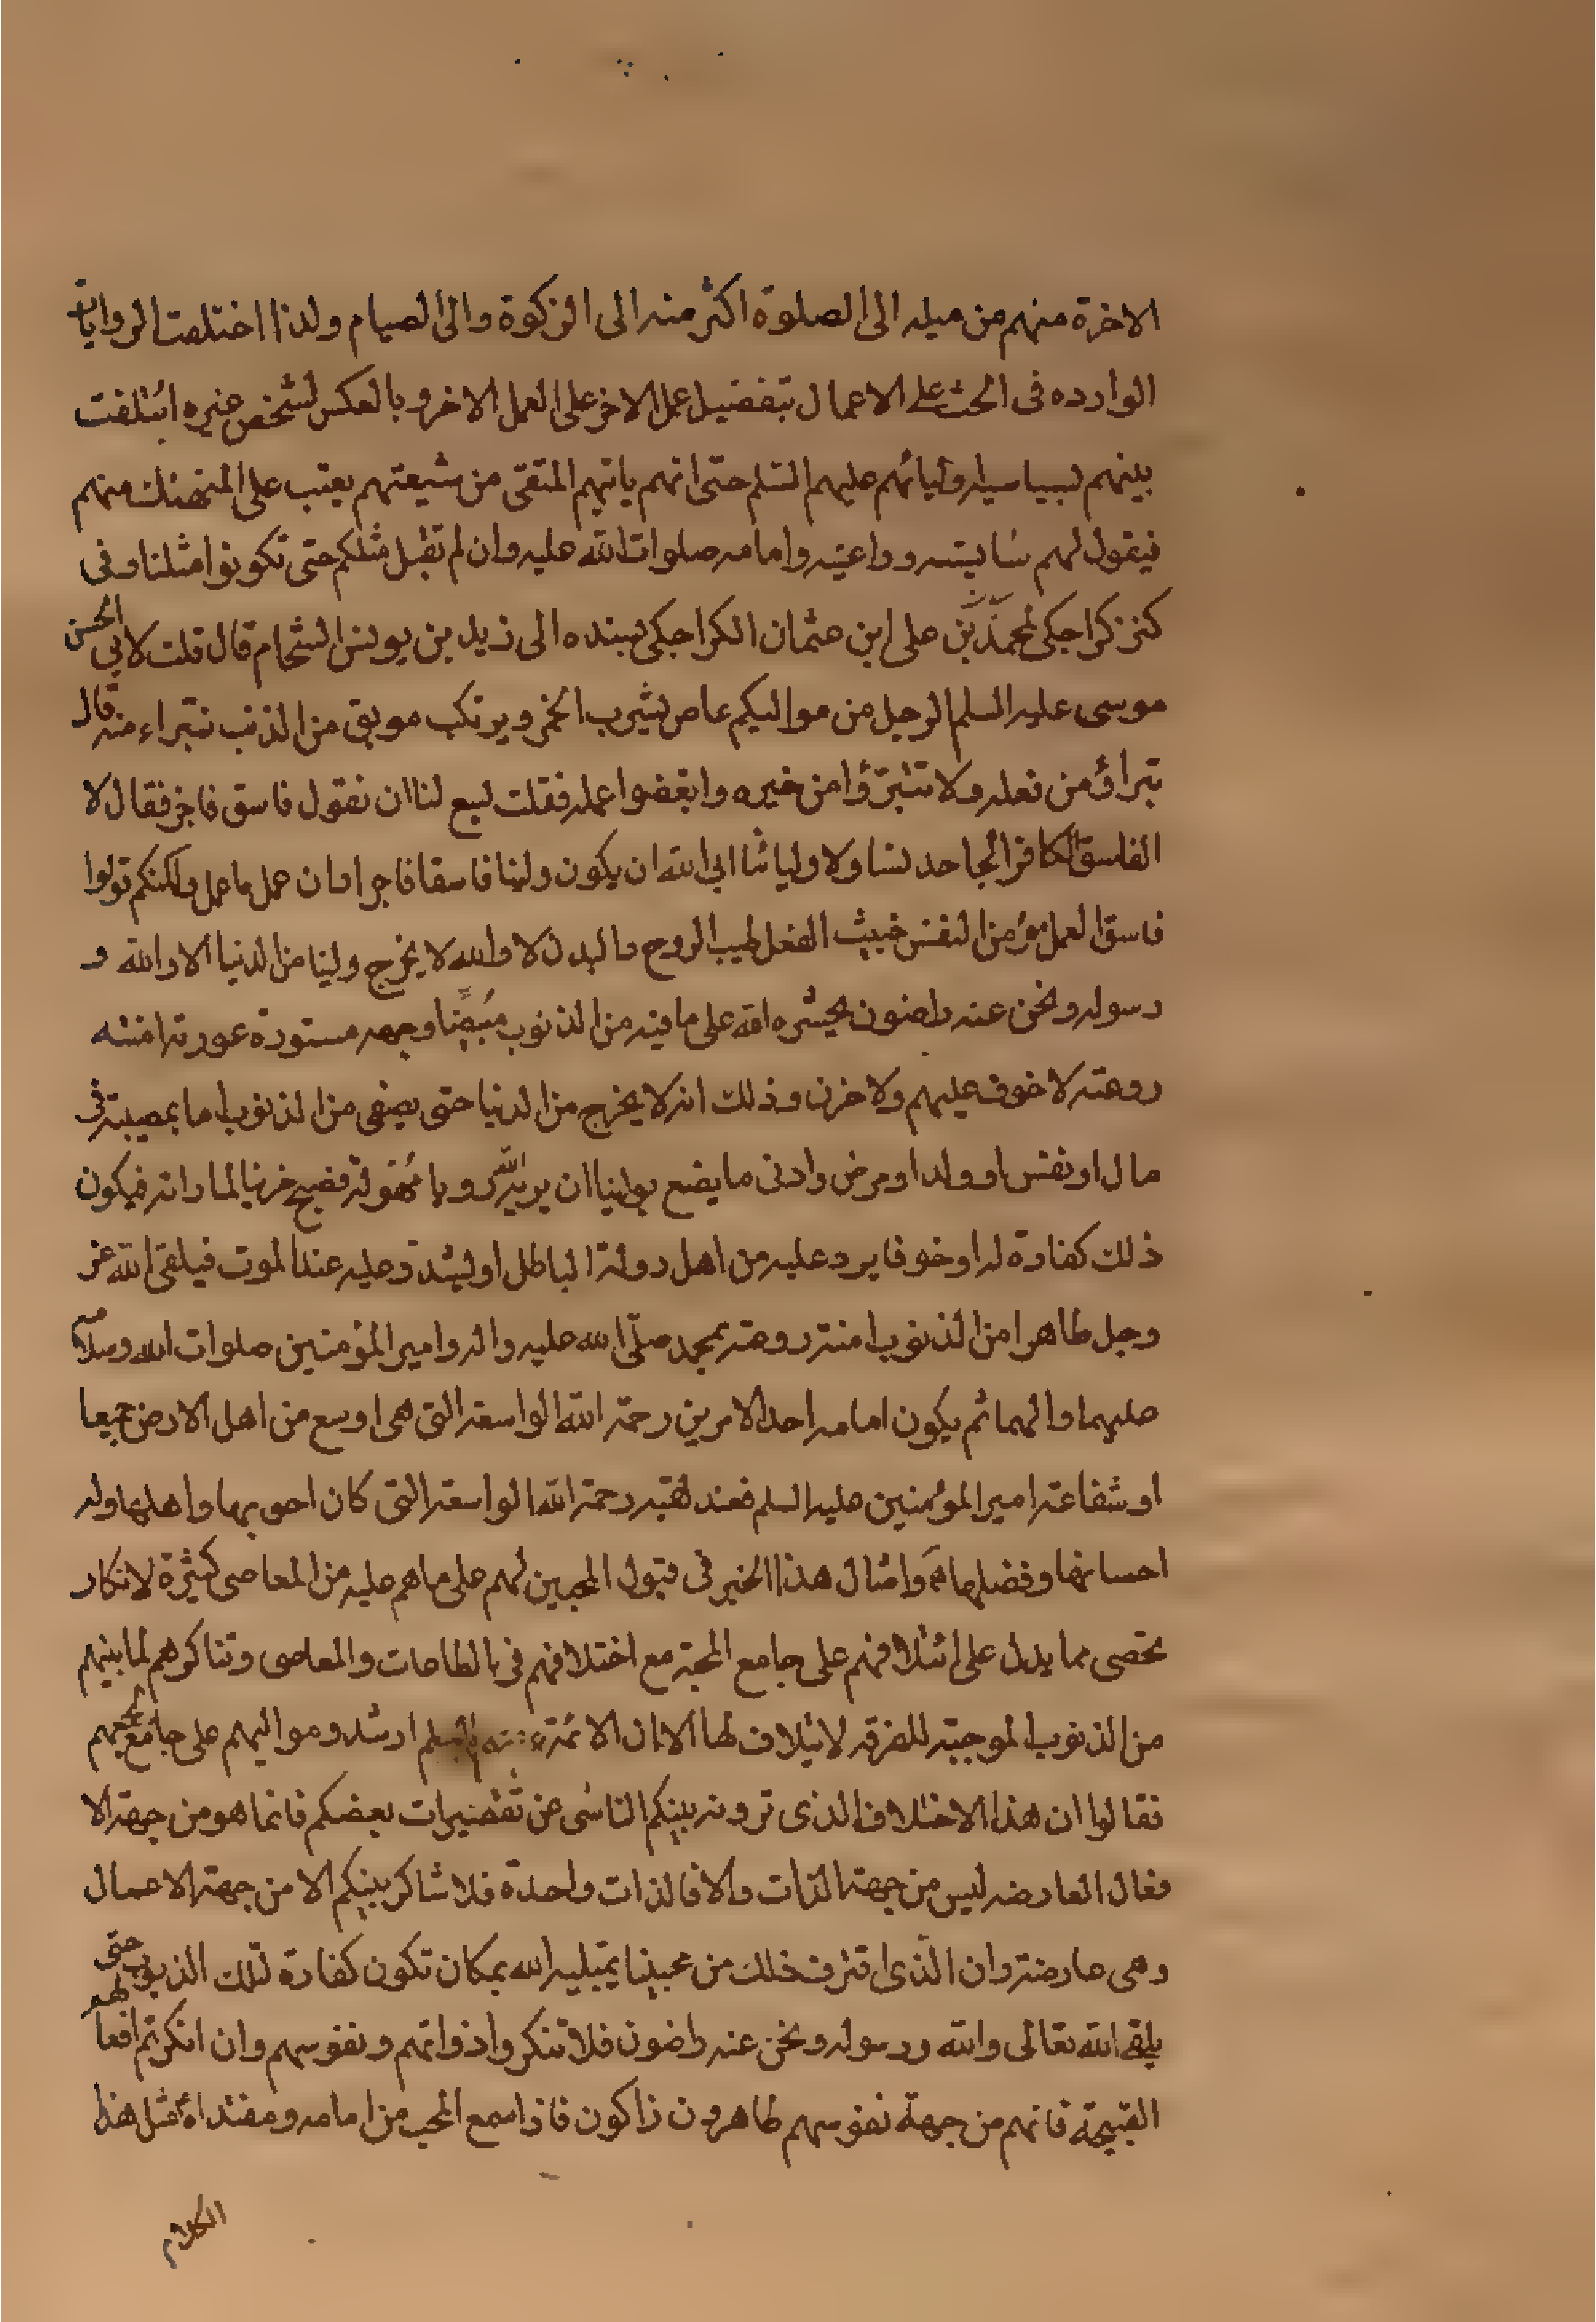 الاخرة منهم من ميله الى الصلوة اكثر منه الى الزكوة والى الصيام ولذا اختلفت الروايات
الوارده فى الحث على الاعمال بتفضيل عمل الاخر على العمل الاخر وبالعكس لشخص غيره ائتلفت
بينهم عليهم السلم حتى انهم ياتيهم المتقى من شيعتهم يعتب على المنهتك منهم
فيقول لهم وامامه صلوات الله عليه وان لم نقبل مثلكم حتى تكونوا مثلنا وفى
كنز كراجكى لمحمد بن على ابن عثمان الكراجكى بسنده الى زيد بن يونس الشحام قال قلت لابى الحسن
موسى عليه السلم الرجل من مواليكم عاص يشرب الخمر ويرتكب موبق من الذنب نتبراء منه قال
تبراؤ من فعله ولا تتبرؤا من خيره وابغضوا عمله فقلت يسع لنا ان نقول فاسق فاجر فقال لا
الفاسق الكافر الجاحد لنا ولاوليائنا ابى الله ان يكون ولينا فاسقا فاجرا وان عمل ما عمل ولكنكم قولوا
فاسق العمل مؤمن النفس خبيث الفعل طيب الروح والبدن لا والله لا يخرج ولينا من الدنيا الا والله و
رسوله ونحن عنه راضون يحشره الله على ما فيه من الذنوب مبيضا وجهه مستورة عورته امنه
روعته لا خوف عليهم ولا حزن وذلك انه لا يخرج من الدنيا حتى يصفى من الذنوب اما بمصيبة فى
مال او نفس او ولد او مرض وادنى ما يصنع بولينا ان يريه الله رويا مهولة فصبح حزينا لما راته فيكون
ذلك كفارة له او خوفا يرد عليه من اهل دولة الباطل او يشدد عليه عند الموت فيلقى الله عز
وجل طاهرا من الذنوب امنة روعته بمحمد صلى الله عليه واله وامير المؤمنين صلوات الله وسلامه
عليهما والهما ثم يكون امامه احد الامرين رحمة الله الواسعة التى هى اوسع من اهل الارض جميعا
او شفاعة امير المؤمنين عليه السلم فعند تصيبه رحمة الله الواسعة التى كان احق بها واهلها وله
احسانها وفضلها وامثال هذا الخبر فى قبول المحبين لهم على ما هم عليه من المعاصى كثيرة لا تكاد
تحصى مما يدل على ائتلافهم على جامع المحبة مع اختلافهم فى الطاعات والمعاصى وتناكرهم لما بينهم
من الذنوب الموجبة للفرقه لائتلاف لها الا ان الائمة عليهم السلم ارشدو مواليهم على جامع
فقالوا ان هذا الاختلاف الذى ترونه بينكم الناشى عن تقصيرات بعضكم فانما هو من جهة الا
فعال العارضه ليس من جهة الذات والا فالذات واحدة فلا تناكر بينكم الا من جهة الاعمال
وهى عارضة وان الذى اقترف ذلك من محبينا يبتليه الله بمكان تكون كفارة لتلك الذنوب حتى
يلقى الله تعالى والله ورسوله ونحن عنه راضون فلا تنكروا ذواتهم ونفوسهم وان انكرتم افعالهم
القبيحة فانهم من جهة نفوسهم طاهرون زاكون فاذا سمع المحب من امامه ومقتداه مثل هذا
الكلام